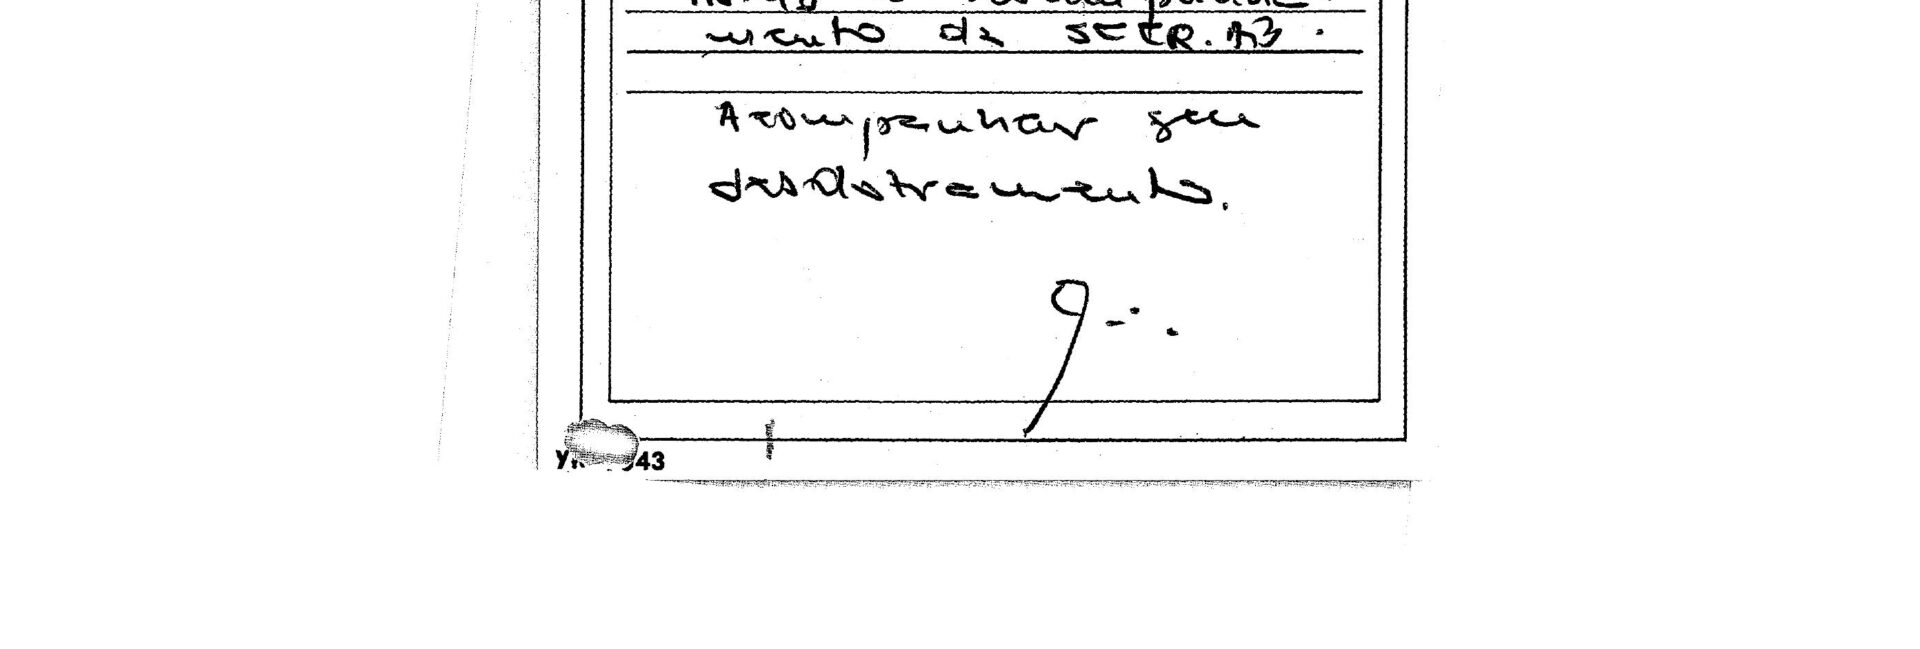 mento da SECR. A3.
Acompanhar seu
desdobramento.
43